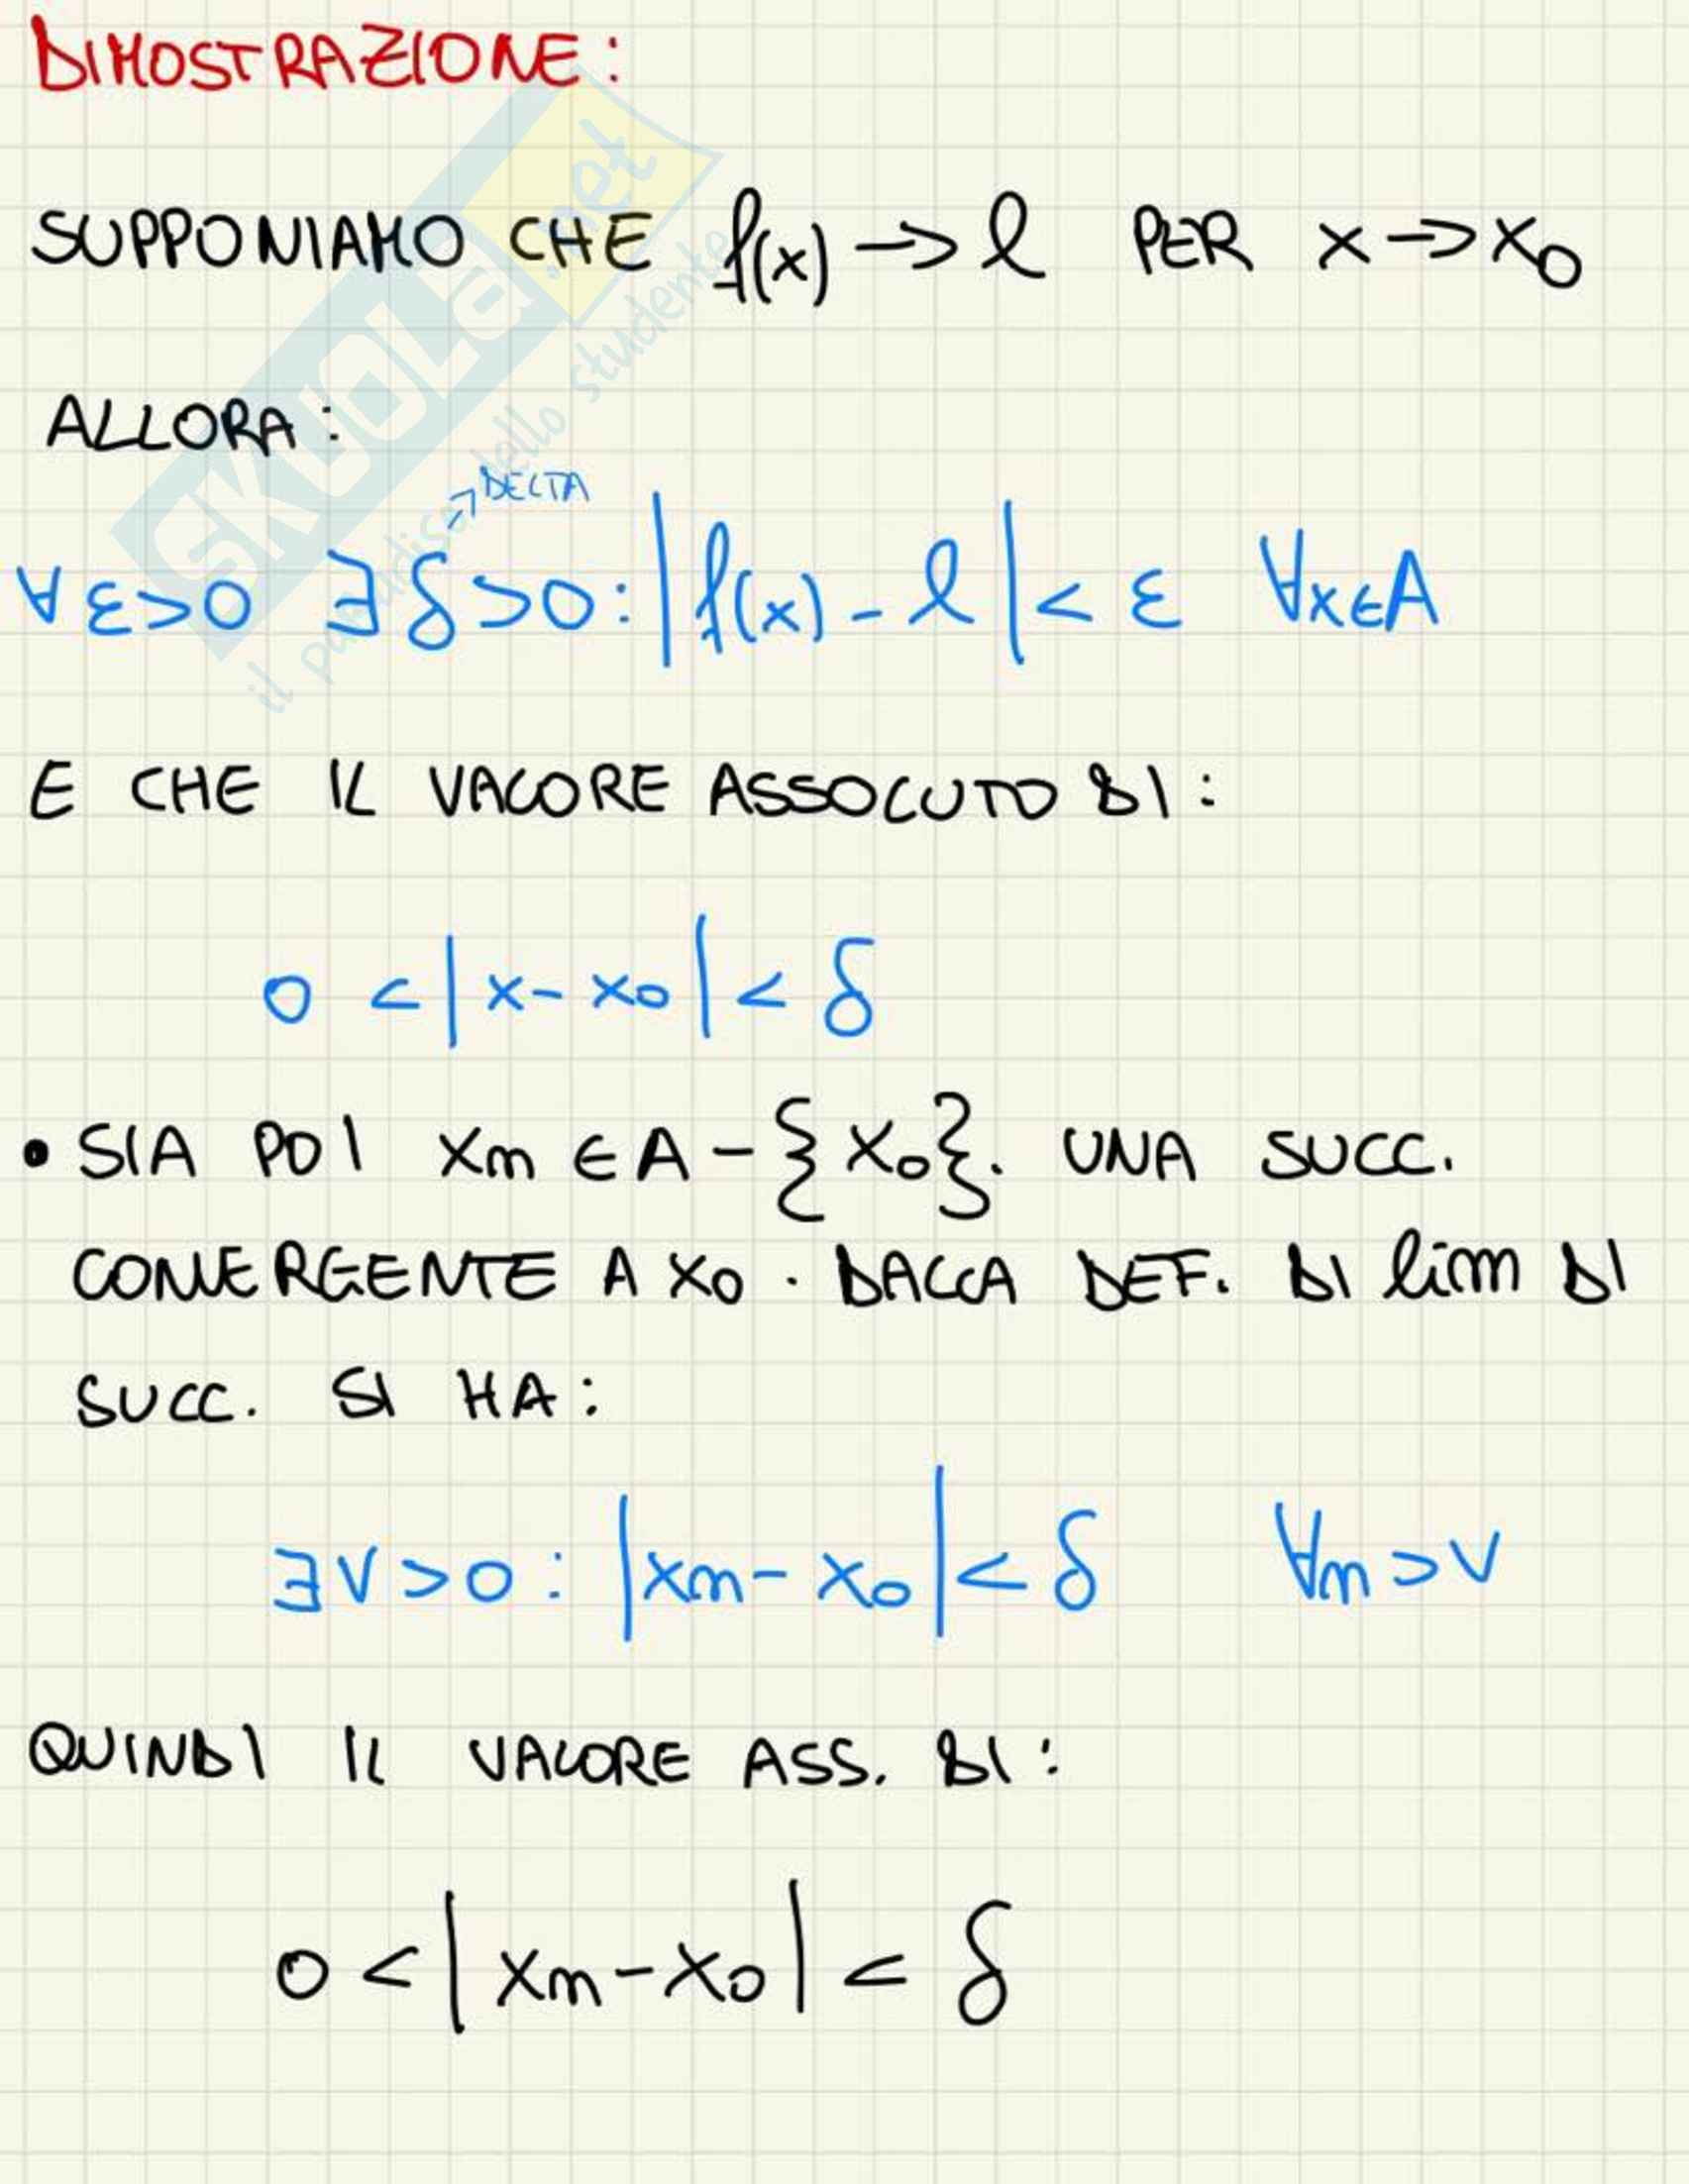 DIMOSTRAZIONE:
SUPPONIAMO CHE f(x) → l PER x → x₀
ALLORA:
→ DELTA
∀ε>0 ∃δ>0: |f(x) - l| < ε ∀x∈A
E CHE IL VALORE ASSOLUTO DI:
0 < |x - x₀| < δ
• SIA POI xn ∈ A - {x₀}. UNA SUCC.
CONVERGENTE A x₀. DALLA DEF. DI lim DI
SUCC. SI HA:
∃ν>0: |xn - x₀| < δ ∀n>ν
QUINDI IL VALORE ASS. DI:
0 < |xn - x₀| < δ
SKUOLA.net
il paradiso dello studente